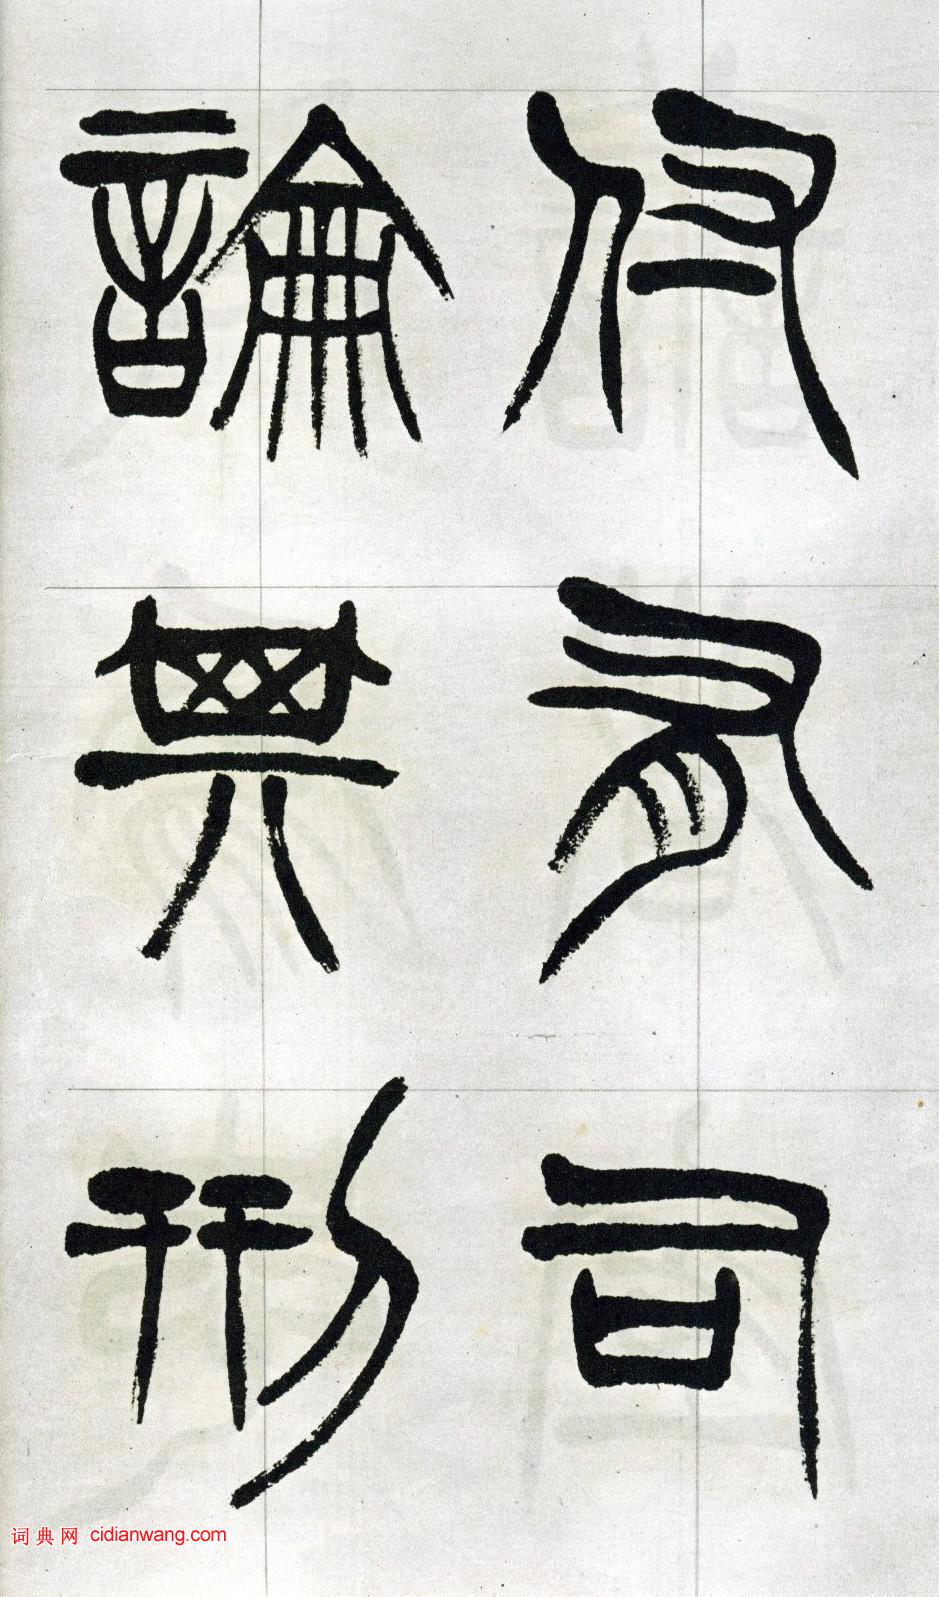 付有司
論其刑
词典网 cidianwang.com